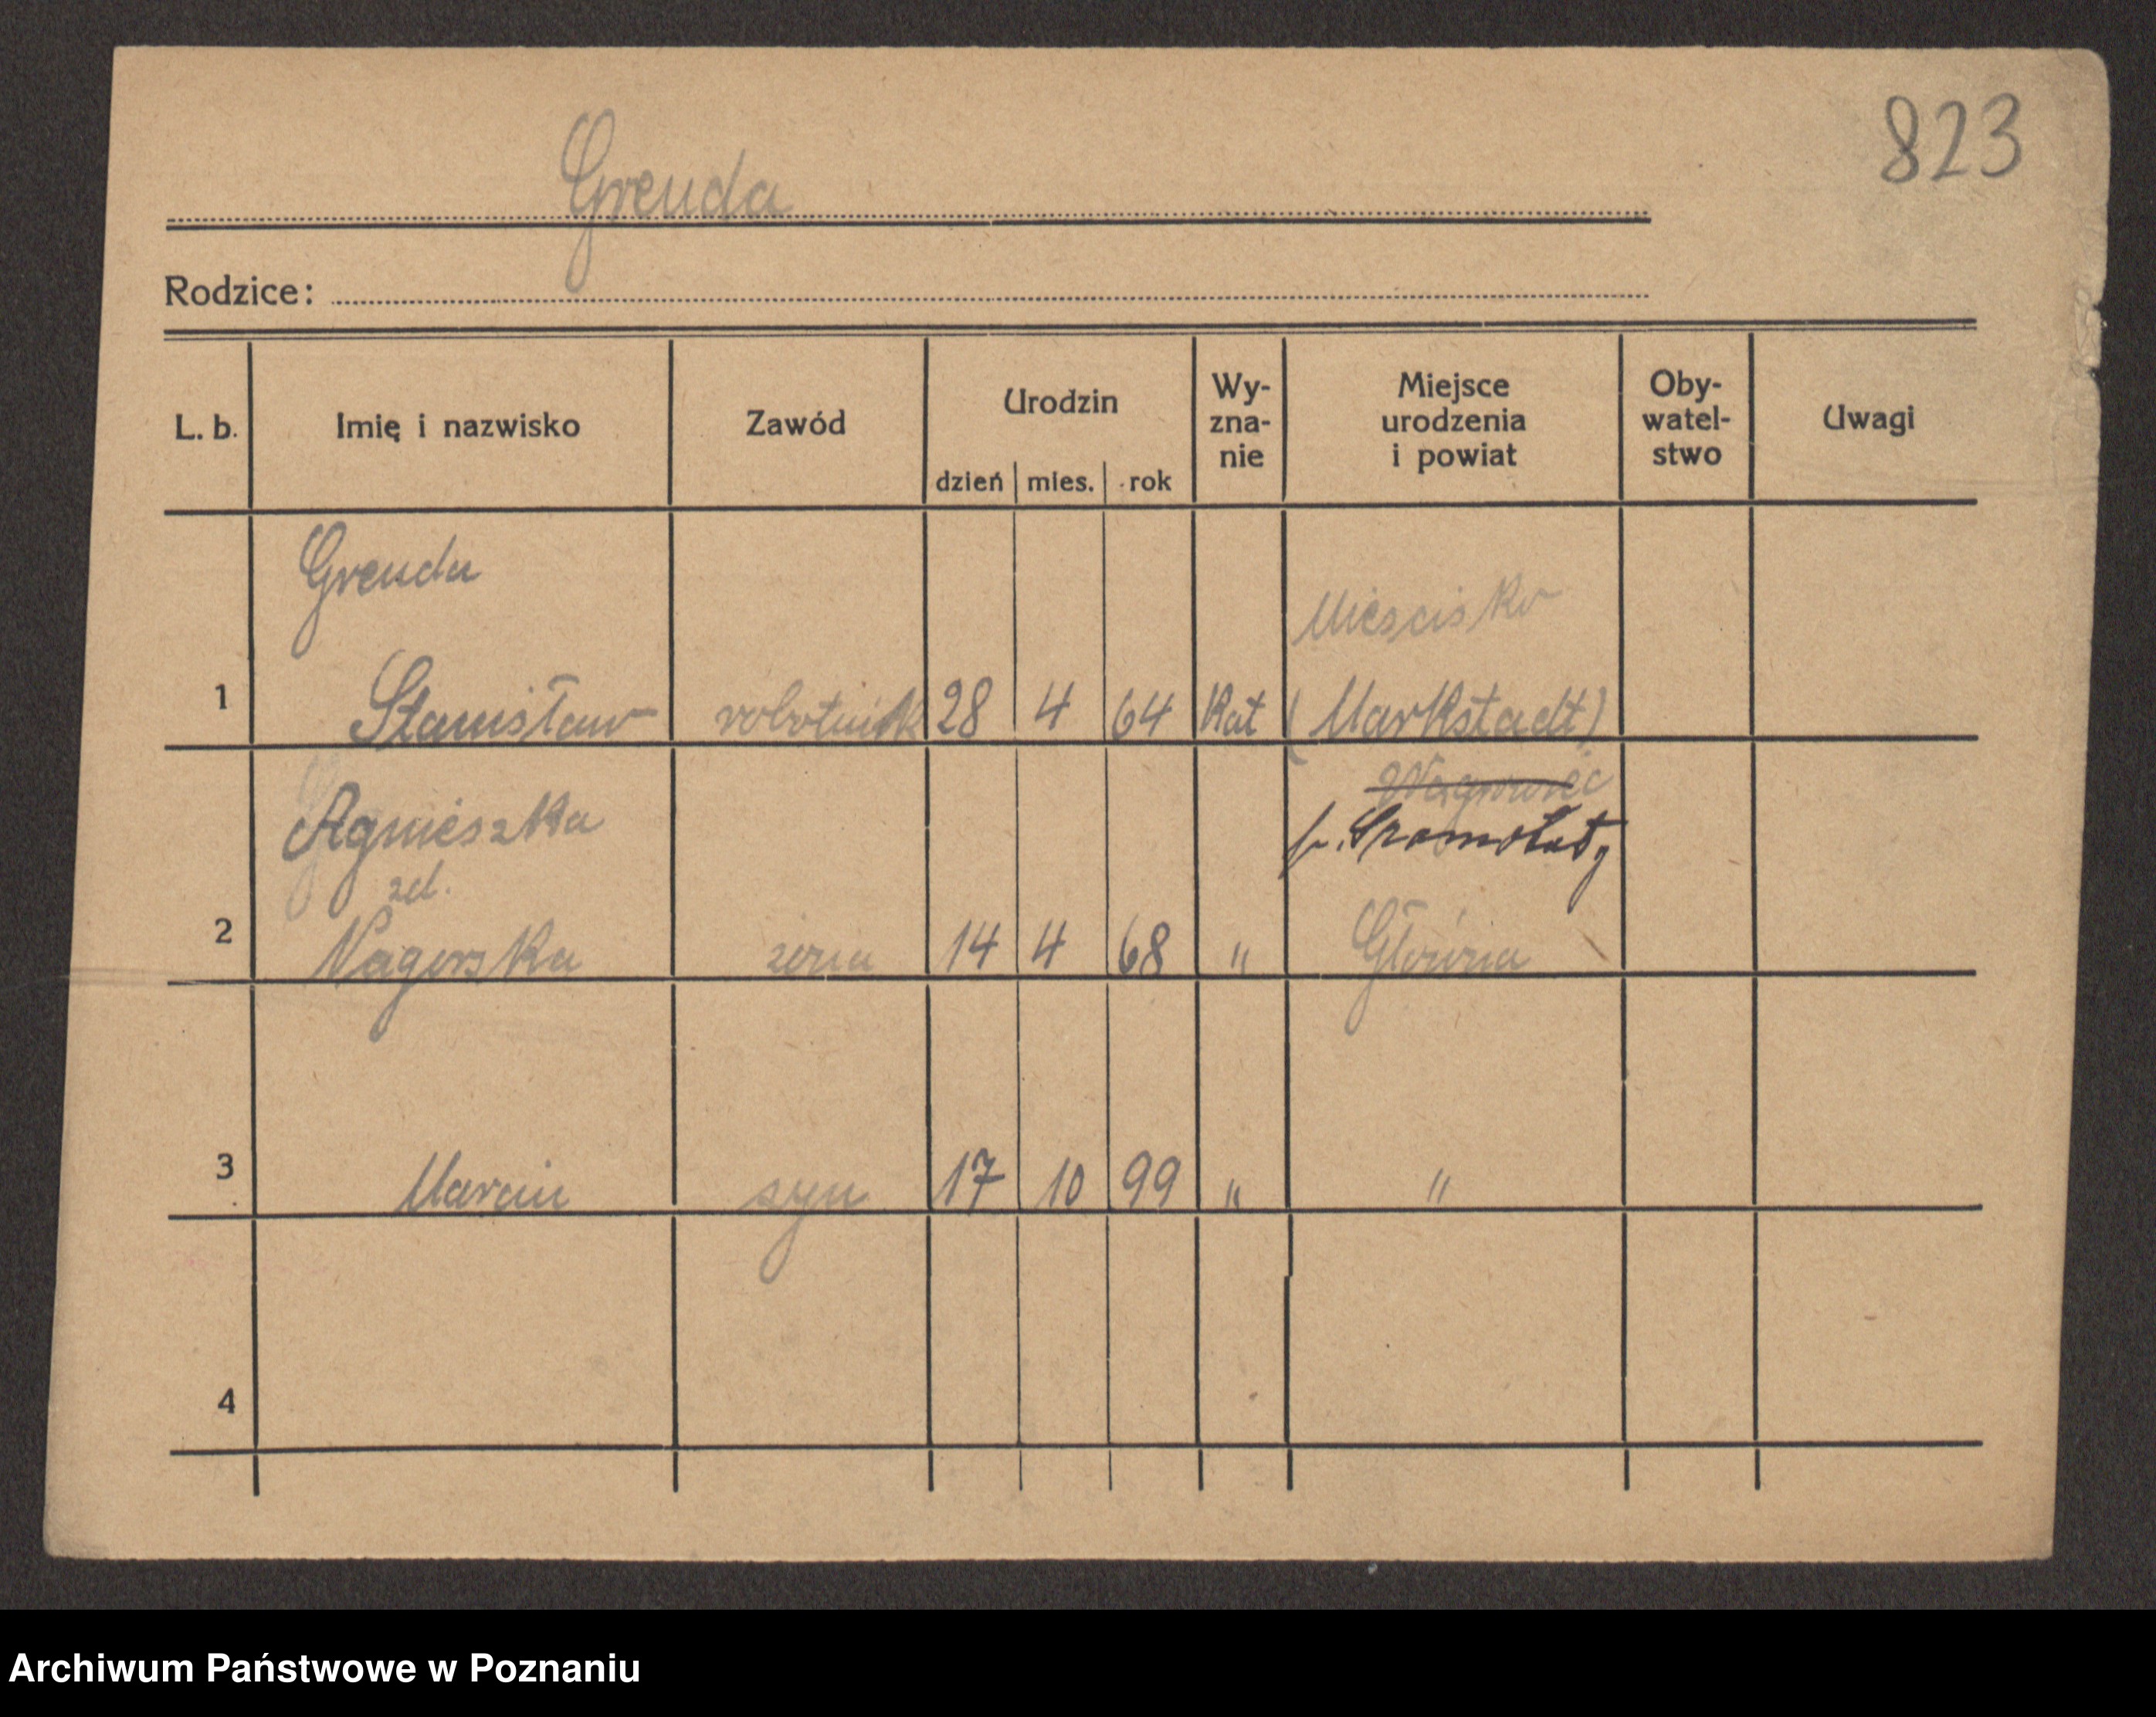 823
Grenda
Rodzice:
L. b. Imię i nazwisko Zawód Urodzin dzień mies. rok Wy-zna-nie Miejsce urodzenia i powiat Oby-watel-stwo Uwagi
Grenda
Miescisko
1 Stanisław robotnik 28 4 64 Kat (Markstadt)
Agnieszka
p. Szamotuły
zd.
2 Nagorska żona 14 4 68 " Główna
3 Marcin syn 17 10 99 " "
4
Archiwum Państwowe w Poznaniu